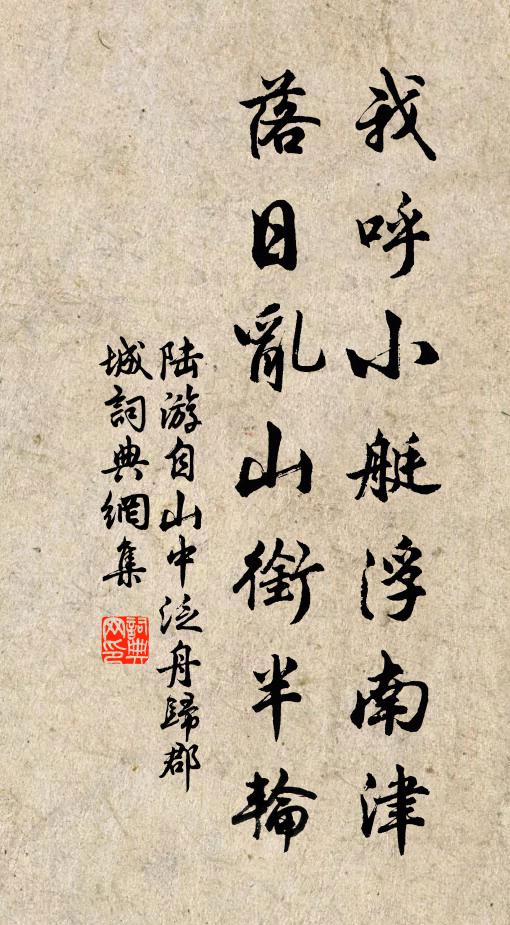 我呼小艇浮南津
落日亂山銜半輪
陆游自山中泛舟歸郡
城詞典網集
詞典
网印